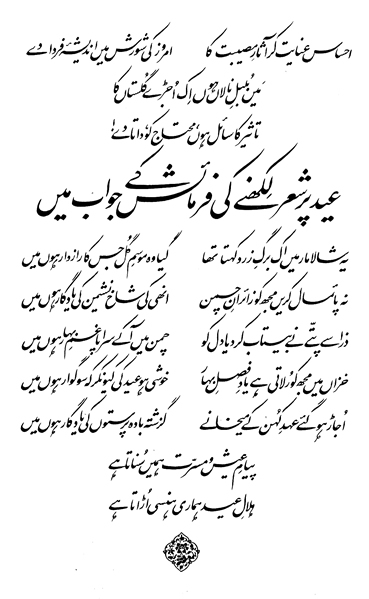 احساس عنایت کر آثارِ مصیبت کا امروز کی شورش میں اندیشۂ فردا دے
میں بلبلِ نالاں ہوں اِک اُجڑے گلستاں کا
تاثیر کا سائل ہوں، محتاج کو، داتا دے!
عید پر شعر لکھنے کی فرمائش کے جواب میں
یہ شالامار میں اک برگِ زرد کہتا تھا گیا وہ موسمِ گل جس کا رازدار ہوں میں
نہ پائمال کریں مجھ کو زائرانِ چمن انھی کی شاخِ نشیمن کی یادگار ہوں میں
ذرا سے پتّے نے بیتاب کر دیا دل کو چمن میں آکے سراپا غمِ بہار ہوں میں
خزاں میں مجھ کو رلاتی ہے یادِ فصلِ بہار خوشی ہو عید کی کیونکر کہ سوگوار ہوں میں
اُجاڑ ہو گئے عہدِ کہن کے میخانے گزشتہ بادہ پرستوں کی یادگار ہوں میں
پیامِ عیش و مسرت ہمیں سُناتا ہے
ہلالِ عید ہماری ہنسی اُڑاتا ہے